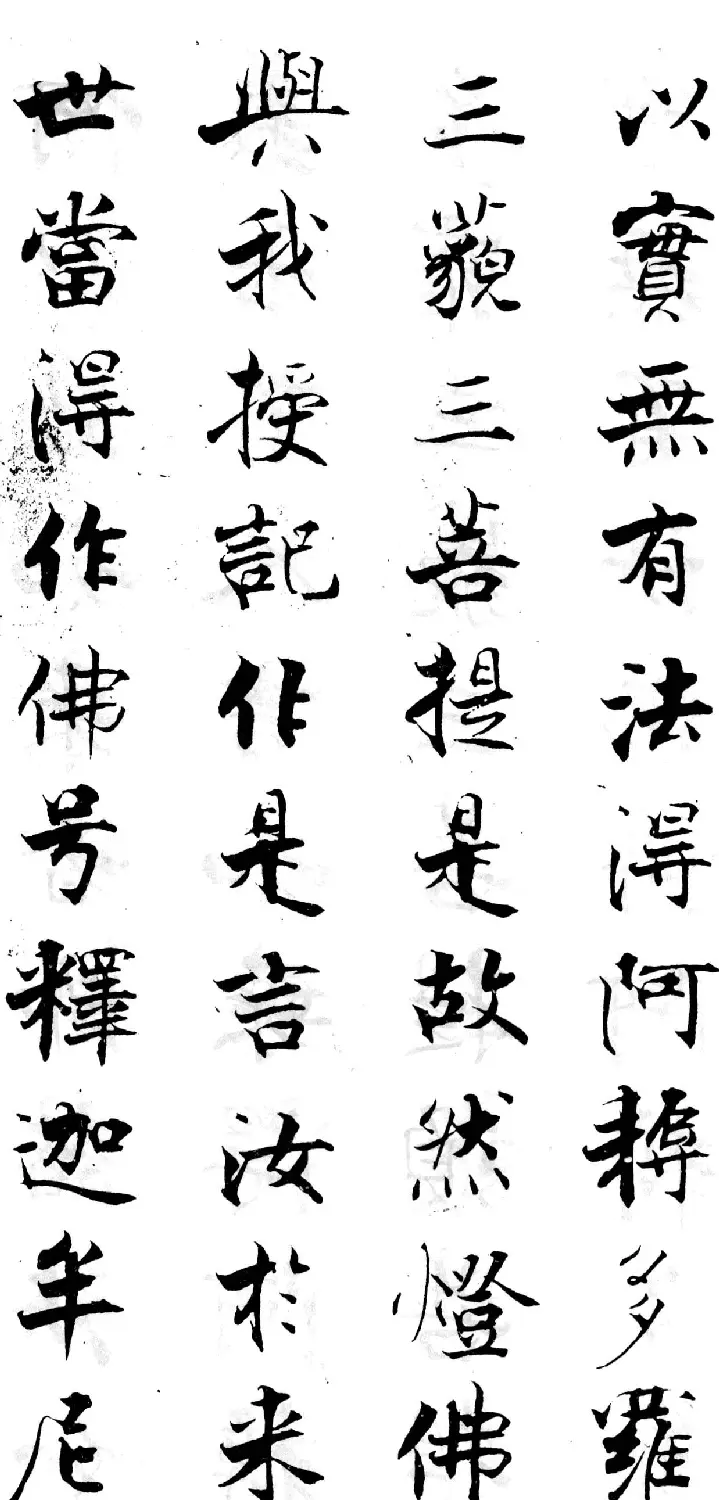 以實無有法得阿耨多羅
三藐三菩提是故然燈佛
與我授記作是言汝於来
世當得作佛号釋迦牟尼